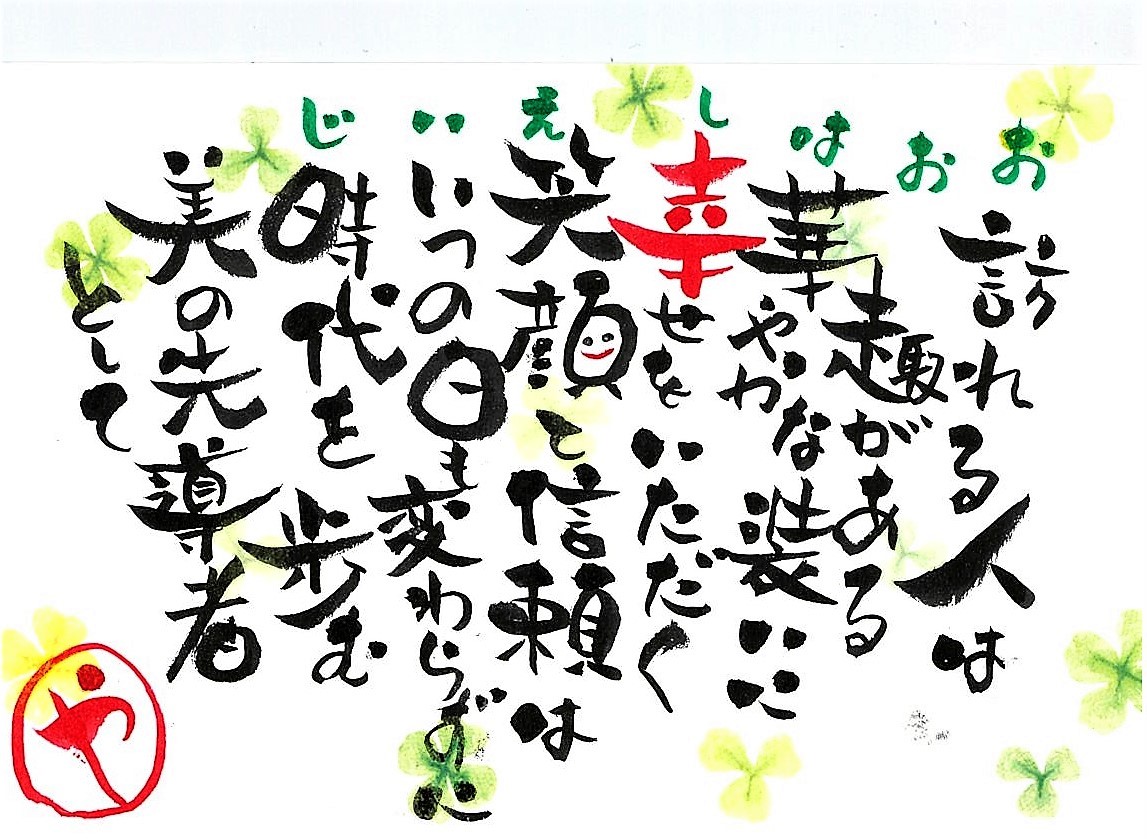 おおはしえいじ
訪れる人は
趣がある
華やかな装いに
幸せをいただく
笑顔と信頼は
いつの日も変わらずに
時代を歩む
美の先導者
として
や